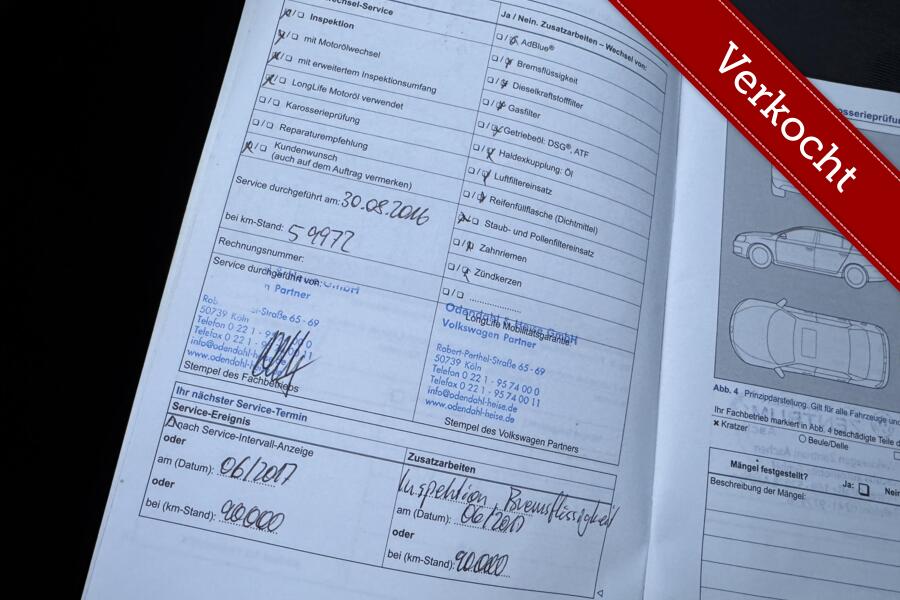 chsel-Service
Inspektion
mit Motorölwechsel
mit erweitertem Inspektionsumfang
LongLife Motoröl verwendet
Karosserieprüfung
Reparaturempfehlung
Kundenwunsch
(auch auf dem Auftrag vermerken)
Service durchgeführt am: 30.08.2016
bei km-Stand: 59972
Rechnungsnummer:
Service durchgeführt von:
GmbH
n Partner
Rob -Straße 65 - 69
50739 Köln
Telefon 0 22 1 - 95 0 0
Telefax 0 22 1 - 11
info@odendahl-
www.odendahl-
Stempel des Fachbetriebs
Ja / Nein. Zusatzarbeiten – Wechsel von:
AdBlue®
Bremsflüssigkeit
Dieselkraftstofffilter
Gasfilter
Getriebeöl: DSG®, ATF
Haldexkupplung: Öl
Luftfiltereinsatz
Reifenfüllflasche (Dichtmittel)
Staub- und Pollenfiltereinsatz
Zahnriemen
Zündkerzen
LongLife Mobilitätsgarantie:
Odendahl & Heise GmbH
Volkswagen Partner
Robert-Perthel-Straße 65 - 69
50739 Köln
Telefon 0 22 1 - 95 74 00 0
Telefax 0 22 1 - 95 74 00 11
info@odendahl-heise.de
www.odendahl-heise.de
Stempel des Volkswagen Partners
Ihr nächster Service-Termin
Service-Ereignis
nach Service-Intervall-Anzeige
oder
am (Datum): 06/2017
oder
bei (km-Stand): 90.000
Zusatzarbeiten
Inspektion, Bremsflüssigkeit
am (Datum): 06/2017
oder
bei (km-Stand): 90.000
Verkocht
osserieprüfu
Abb. 4 Prinzipdarstellung. Gilt für alle Fahrzeuge un
Ihr Fachbetrieb markiert in Abb. 4 beschädigte Teile d
Kratzer
Beule/Delle
Mängel festgestellt?
Ja:
Nein
Beschreibung der Mängel: